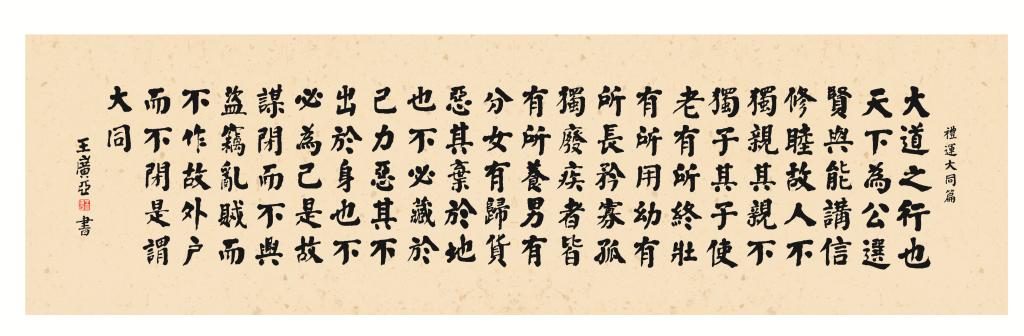 禮運大同篇
大道之行也
天下為公選
賢與能講信
修睦故人不
獨親其親不
獨子其子使
老有所終壯
有所用幼有
所長矜寡孤
獨廢疾者皆
有所養男有
分女有歸貨
惡其棄於地
也不必藏於
己力惡其不
出於身也不
必為己是故
謀閉而不興
盜竊亂賊而
不作故外户
而不閉是謂
大同
王廣亞書